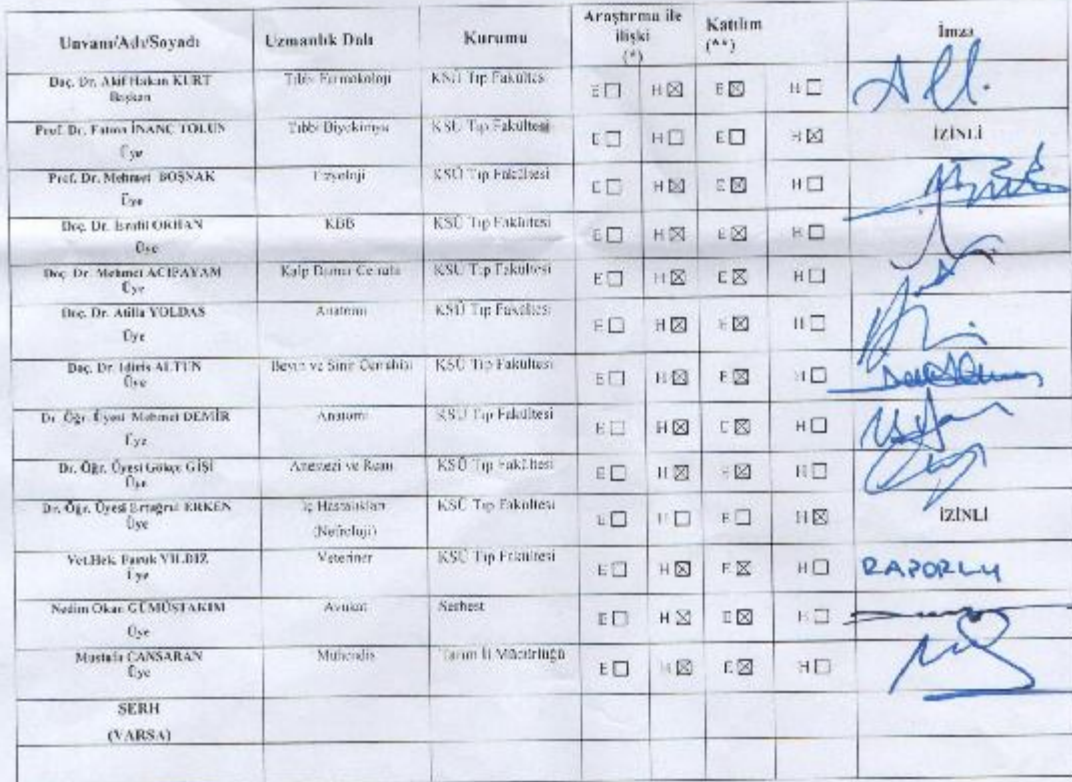 Unvanı/Adı/Soyadı Uzmanlık Dalı Kurumu Araştırma ile ilişki (*) Katılım (**) İmza
Doç. Dr. Akif Hakan KURT Tıbbi Farmakoloji KSÜ Tıp Fakültesi E H E H
Başkan
Prof. Dr. Fatma İNANÇ TOLUN Tıbbi Biyokimya KSÜ Tıp Fakültesi E H E H İZİNLİ
Üye
Prof. Dr. Mehmet BOŞNAK Fizyoloji KSÜ Tıp Fakültesi E H E H
Üye
Doç. Dr. İsrafil ORHAN KBB KSÜ Tıp Fakültesi E H E H
Üye
Doç. Dr. Mehmet ACIPAYAM Kalp Damar Cerrahi KSÜ Tıp Fakültesi E H E H
Üye
Doç. Dr. Atilla YOLDAS Anatomi KSÜ Tıp Fakültesi E H E H
Üye
Doç. Dr. İdiris ALTUN Beyin ve Sinir Cerrahisi KSÜ Tıp Fakültesi E H E H
Üye
Dr. Öğr. Üyesi Mehmet DEMİR Anatomi KSÜ Tıp Fakültesi E H E H
Üye
Dr. Öğr. Üyesi Gökçe GİŞİ Anestezi ve Rean KSÜ Tıp Fakültesi E H E H
Üye
Dr. Öğr. Üyesi Ertuğrul ERKEN İç Hastalıkları KSÜ Tıp Fakültesi E H E H İZİNLİ
Üye (Nefroloji)
Vet.Hek. Faruk YILDIZ Veteriner KSÜ Tıp Fakültesi E H E H RAPORLU
Üye
Nedim Okan GÜMÜŞTAKIM Avukat Serbest E H E H
Üye
Mustafa CANSARAN Mühendis Tarım İl Müdürlüğü E H E H
Üye
SERH
(VARSA)